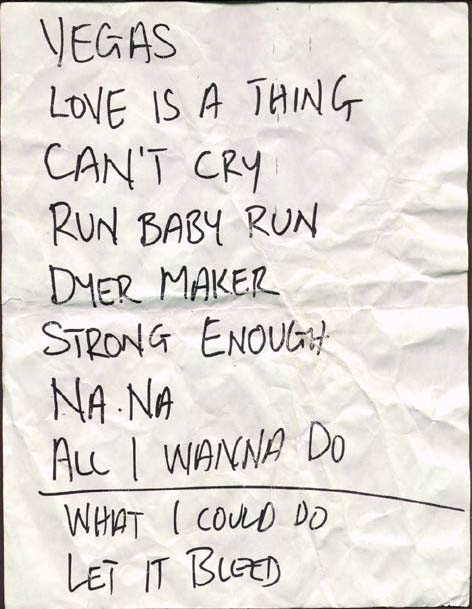 VEGAS
LOVE IS A THING
CAN'T CRY
RUN BABY RUN
DYER MAKER
STRONG ENOUGH
NA·NA
ALL I WANNA DO
WHAT I COULD DO
LET IT BLEED